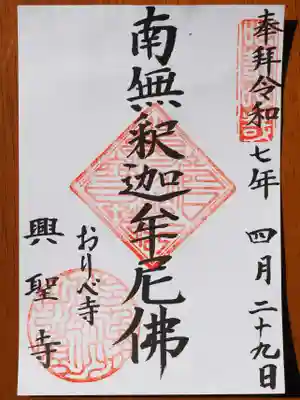 奉拝令和七年 四月 二十九日
南無釈迦牟尼佛
おりべ寺
興聖寺